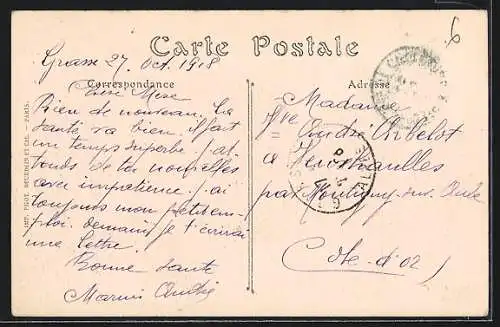 6
Carte Postale
Grasse 27 Oct. 1918
Correspondance
Adresse
Chère Mère
Rien de nouveau. La
santé va bien. il fait
un temps superbe. j'at
tends de tes nouvelles
avec impatience. j'ai
toujours mon petit em-
ploi. demain je t'écrirai
une lettre.
Bonne santé
Madame
Vve André
à
par Montigny-sur-Aube
Côte-d'or
IMP. PIGOT, DESTABLES ET CIE. - PARIS.